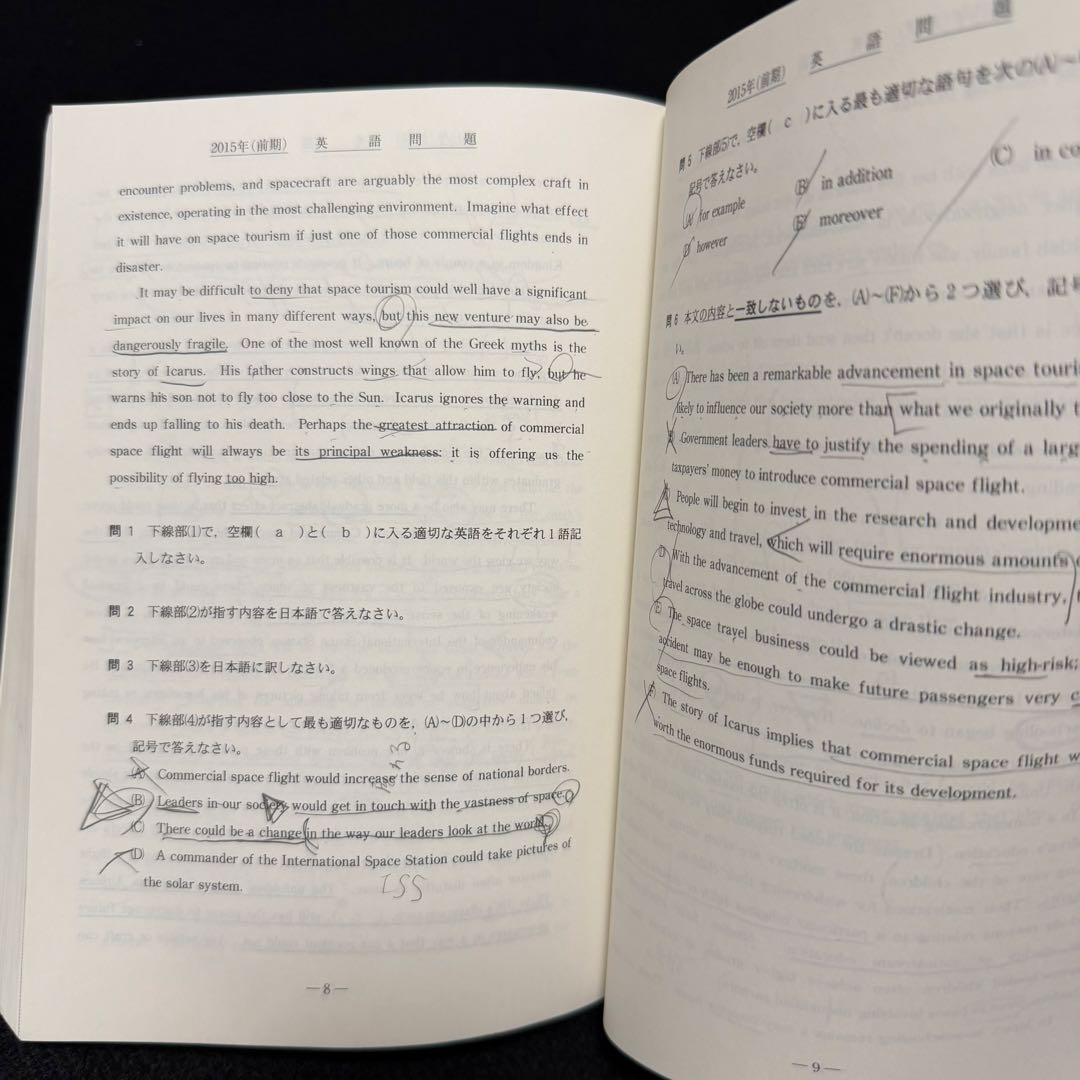 2015年(前期) 英語問題
encounter problems, and spacecraft are arguably the most complex craft in
existence, operating in the most challenging environment. Imagine what effect
it will have on space tourism if just one of those commercial flights ends in
disaster.
It may be difficult to deny that space tourism could well have a significant
impact on our lives in many different ways, but this new venture may also be
dangerously fragile. One of the most well known of the Greek myths is the
story of Icarus. His father constructs wings that allow him to fly, but he
warns his son not to fly too close to the Sun. Icarus ignores the warning and
ends up falling to his death. Perhaps the greatest attraction of commercial
space flight will always be its principal weakness: it is offering us the
possibility of flying too high.
問1 下線部(1)で,空欄( a )と( b )に入る適切な英語をそれぞれ1語記
入しなさい。
問2 下線部(2)が指す内容を日本語で答えなさい。
問3 下線部(3)を日本語に訳しなさい。
問4 下線部(4)が指す内容として最も適切なものを,(A)~(D)の中から1つ選び,
記号で答えなさい。
(A) Commercial space flight would increase the sense of national borders.
(B) Leaders in our society would get in touch with the vastness of space.
(C) There could be a change in the way our leaders look at the world.
(D) A commander of the International Space Station could take pictures of
the solar system.
ISS
―8―
2015年(前期) 英語問題
問5 下線部(5)で,空欄( c )に入る最も適切な語句を次の(A)~
記号で答えなさい。
(A) for example (B) in addition (C) in co
(D) however (E) moreover
問6 本文の内容と一致しないものを,(A)~(F)から2つ選び,記号
い。
(A) There has been a remarkable advancement in space touri
likely to influence our society more than what we originally t
(B) Government leaders have to justify the spending of a larg
taxpayers' money to introduce commercial space flight.
(C) People will begin to invest in the research and developme
technology and travel, which will require enormous amounts
(D) With the advancement of the commercial flight industry,
travel across the globe could undergo a drastic change.
(E) The space travel business could be viewed as high-risk;
accident may be enough to make future passengers very c
space flights.
(F) The story of Icarus implies that commercial space flight w
worth the enormous funds required for its development.
―9―